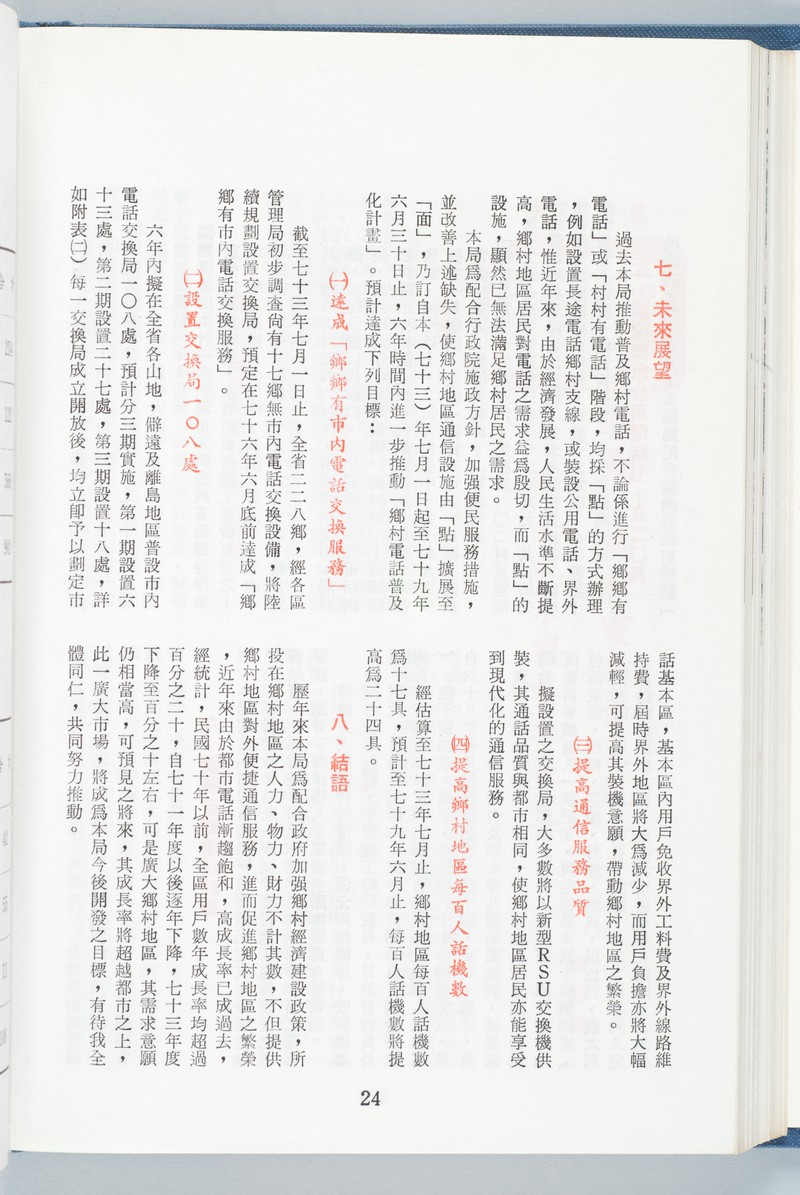 七、未來展望
過去本局推動普及鄉村電話，不論係進行「鄉鄉有
電話」或「村村有電話」階段，均採「點」的方式辦理
，例如設置長途電話鄉村支線，或裝設公用電話、界外
電話，惟近年來，由於經濟發展，人民生活水準不斷提
高，鄉村地區居民對電話之需求益爲殷切，而「點」的
設施，顯然已無法滿足鄉村居民之需求。
本局爲配合行政院施政方針，加强便民服務措施，
並改善上述缺失，使鄉村地區通信設施由「點」擴展至
「面」，乃訂自本（七十三）年七月一日起至七十九年
六月三十日止，六年時間內進一步推動「鄉村電話普及
化計畫」。預計達成下列目標：
㈠達成「鄉鄉有市內電話交換服務」
截至七十三年七月一日止，全省二二八鄉，經各區
管理局初步調查尙有十七鄉無市內電話交換設備，將陸
續規劃設置交換局，預定在七十六年六月底前達成「鄉
鄉有市內電話交換服務」。
㈡設置交換局一〇八處
六年內擬在全省各山地，僻遠及離島地區普設市內
電話交換局一〇八處，預計分三期實施，第一期設置六
十三處，第二期設置二十七處，第三期設置十八處，詳
如附表㈡）每一交換局成立開放後，均立卽予以劃定市
話基本區，基本區內用戶免收界外工料費及界外線路維
持費，屆時界外地區將大爲減少，而用戶負擔亦將大幅
減輕，可提高其裝機意願，帶動鄉村地區之繁榮。
㈢提高通信服務品質
擬設置之交換局，大多數將以新型RSU交換機供
裝，其通話品質與都市相同，使鄉村地區居民亦能享受
到現代化的通信服務。
㈣提高鄉村地區每百人話機數
經估算至七十三年七月止，鄉村地區每百人話機數
爲十七具，預計至七十九年六月止，每百人話機數將提
高爲二十四具。
八、結語
歷年來本局爲配合政府加强鄉村經濟建設政策，所
投在鄉村地區之人力、物力、財力不計其數，不但提供
鄉村地區對外便捷通信服務，進而促進鄉村地區之繁榮
，近年來由於都市電話漸趨飽和，高成長率已成過去，
經統計，民國七十年以前，全區用戶數年成長率均超過
百分之二十，自七十一年度以後逐年下降，七十三年度
下降至百分之十左右，可是廣大鄉村地區，其需求意願
仍相當高，可預見之將來，其成長率將超越都市之上，
此一廣大市場，將成爲本局今後開發之目標，有待我全
體同仁，共同努力推動。
24